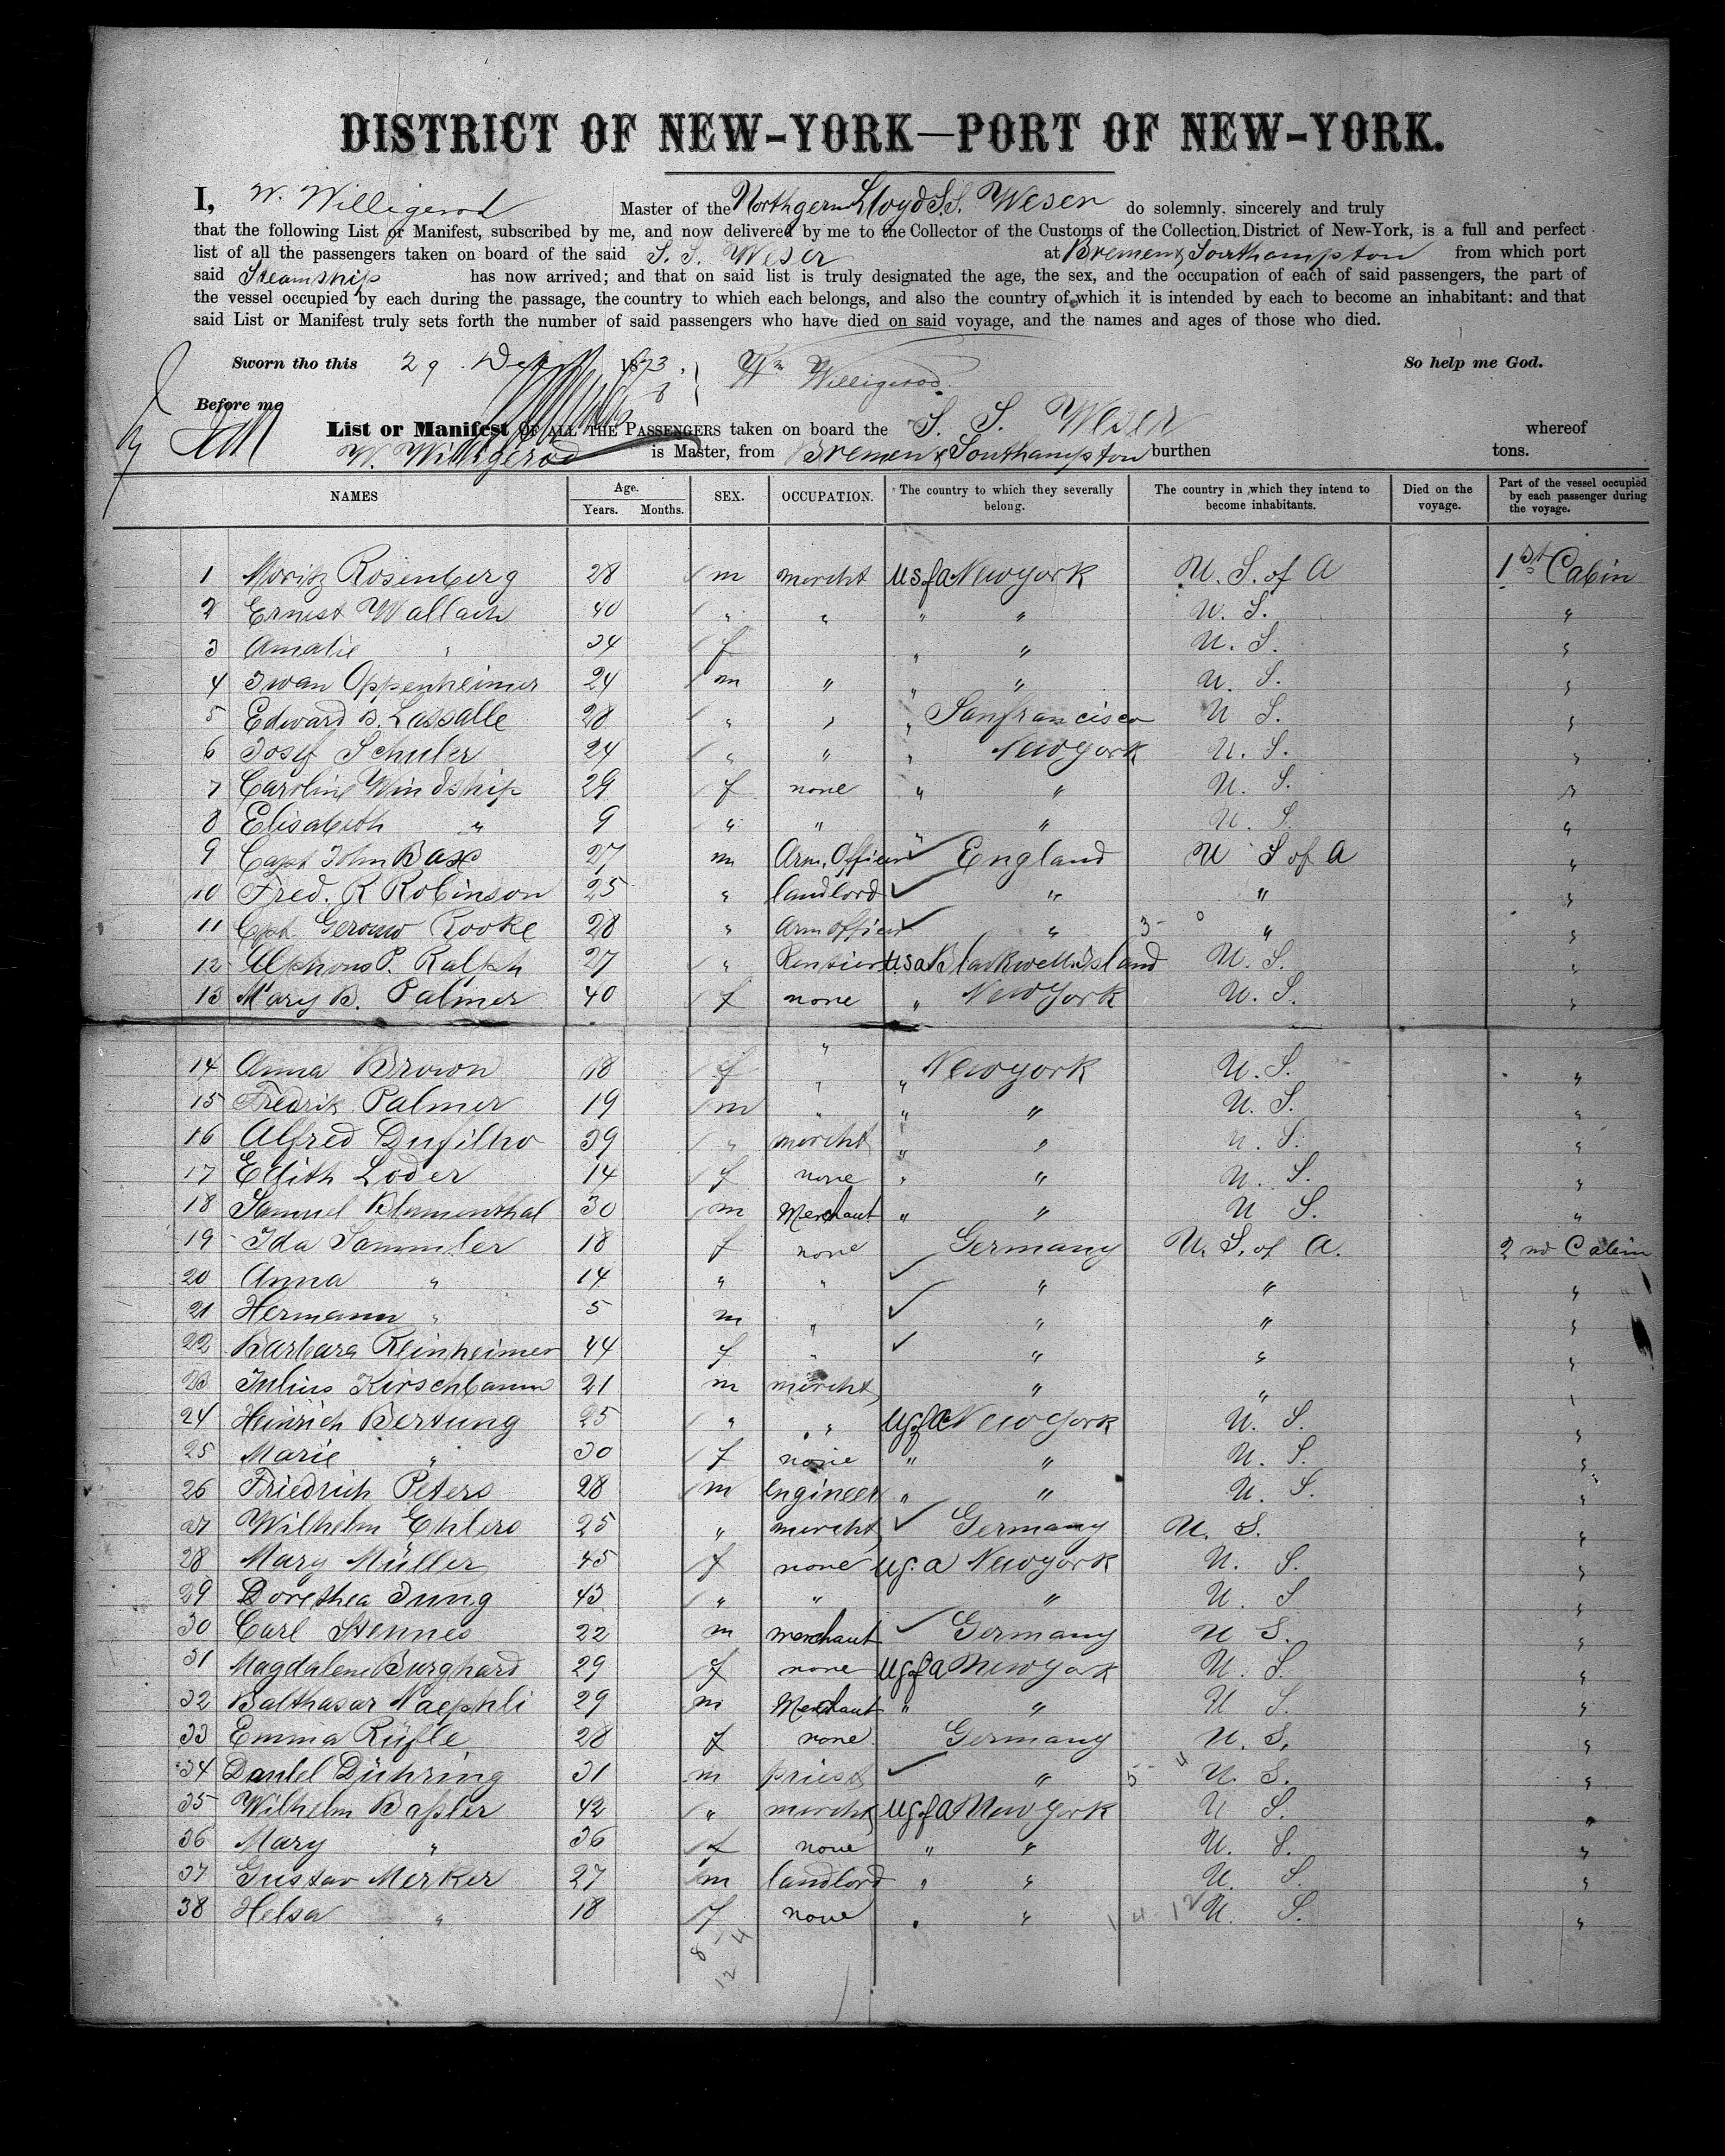 DISTRICT OF NEW-YORK—PORT OF NEW-YORK.
I, W. Willigerod Master of the North germ Lloyd S.S. Weser do solemnly, sincerely and truly
that the following List or Manifest, subscribed by me, and now delivered by me to the Collector of the Customs of the Collection District of New-York, is a full and perfect
list of all the passengers taken on board of the said S. S. Weser at Bremen & Southampton from which port
said Steamship has now arrived; and that on said list is truly designated the age, the sex, and the occupation of each of said passengers, the part of
the vessel occupied by each during the passage, the country to which each belongs, and also the country of which it is intended by each to become an inhabitant: and that
said List or Manifest truly sets forth the number of said passengers who have died on said voyage, and the names and ages of those who died.
Sworn tho this 29 1873, Wm Willigerod. So help me God.
Before me
List or Manifest OF ALL THE PASSENGERS taken on board the S. S. Weser whereof
W. Willigerod is Master, from Bremen & Southampton burthen tons.
NAMES Age. Years. Months. SEX. OCCUPATION. The country to which they severally belong. The country in which they intend to become inhabitants. Died on the voyage. Part of the vessel occupied by each passenger during the voyage.
1 Moritz Rosenberg 28 m mercht U S of A New york U. S. of A 1st Cabin
2 Ernest Wallach 40 " " " " U. S. "
3 Amalie " 34 f " " U. S. "
4 Iwan Oppenheimer 24 m " " " U. S. "
5 Edward B. Lassalle 28 " " " Sanfrancisco U S. "
6 Josef Schuler 24 " " " New york U. S. "
7 Caroline Windship 29 f none " " U. S. "
8 Elisabeth " 9 " " " U. S. "
9 Capt John Bax 27 m Arm. Officer " England U S of A "
10 Fred. R Robinson 25 " landlord " " "
11 Capt. Rooke 28 " Arm officer " 3- 0 " "
12 Alphons P. Ralph 27 " Rentier U S a Blackwells Island U. S. "
13 Mary B. Palmer 40 f none " New York U. S. "
14 Anna Brown 18 f " " New york U. S. "
15 Fredrik Palmer 19 m " " " U. S. "
16 Alfred Dufilho 39 " mercht " " U. S. "
17 Edith Loder 14 f none " " U. S. "
18 Samuel Blumenthal 30 m Merchant " " U S. "
19 Ida Sammler 18 f none Germany U. S. of A. 2nd Cabin
20 Anna " 14 " " " " "
21 Hermann " 5 m " " " "
22 Barbara Reinheimer 44 f " " " "
23 Julius Kirschbaum 21 m mercht " " "
24 Heinrich Bertung 25 " " U S of A New York U. S. "
25 Marie " 30 f none " " U. S. "
26 Friedrich Peters 28 m Engineer " " U. S. "
27 Wilhelm Ehlers 25 " mercht Germany U. S. "
28 Mary Müller 45 f none U S. a New york U. S. "
29 Dorethea Jung 43 " " " U. S "
30 Carl Stennes 22 m merchant Germany U S. "
31 Magdalena Burghard 29 f none U S of A New York U. S. "
32 Balthasar Naephli 29 m Merchant " " U S. "
33 Emma Rüfle 28 f none Germany U. S. "
34 Daniel Dühring 31 m priest " 5- 4 U. S. "
35 Wilhelm Baßler 42 " mercht U S of A New York U S. "
36 Mary " 36 f none " " U. S. "
37 Gustav Merker 27 m landlord " " U. S. "
38 Helsa " 18 f none " " 14-12 U. S. "
8 - 4
12